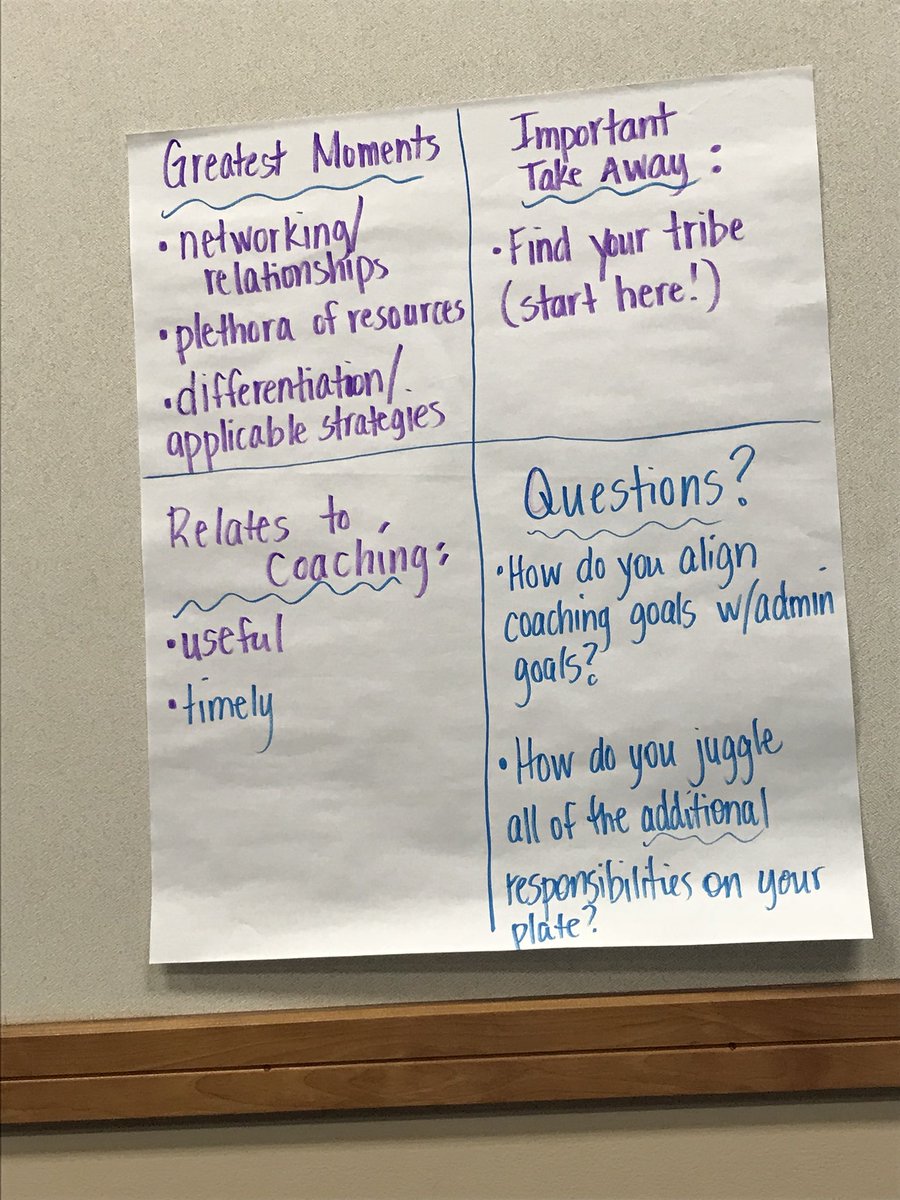 Greatest Moments
• networking/
relationships
• plethora of resources
• differentiation/
applicable strategies
Important
Take Away:
• Find your tribe
(start here!)
Relates to
Coaching:
• useful
• timely
Questions?
• How do you align
coaching goals w/admin
goals?
• How do you juggle
all of the additional
responsibilities on your
plate?